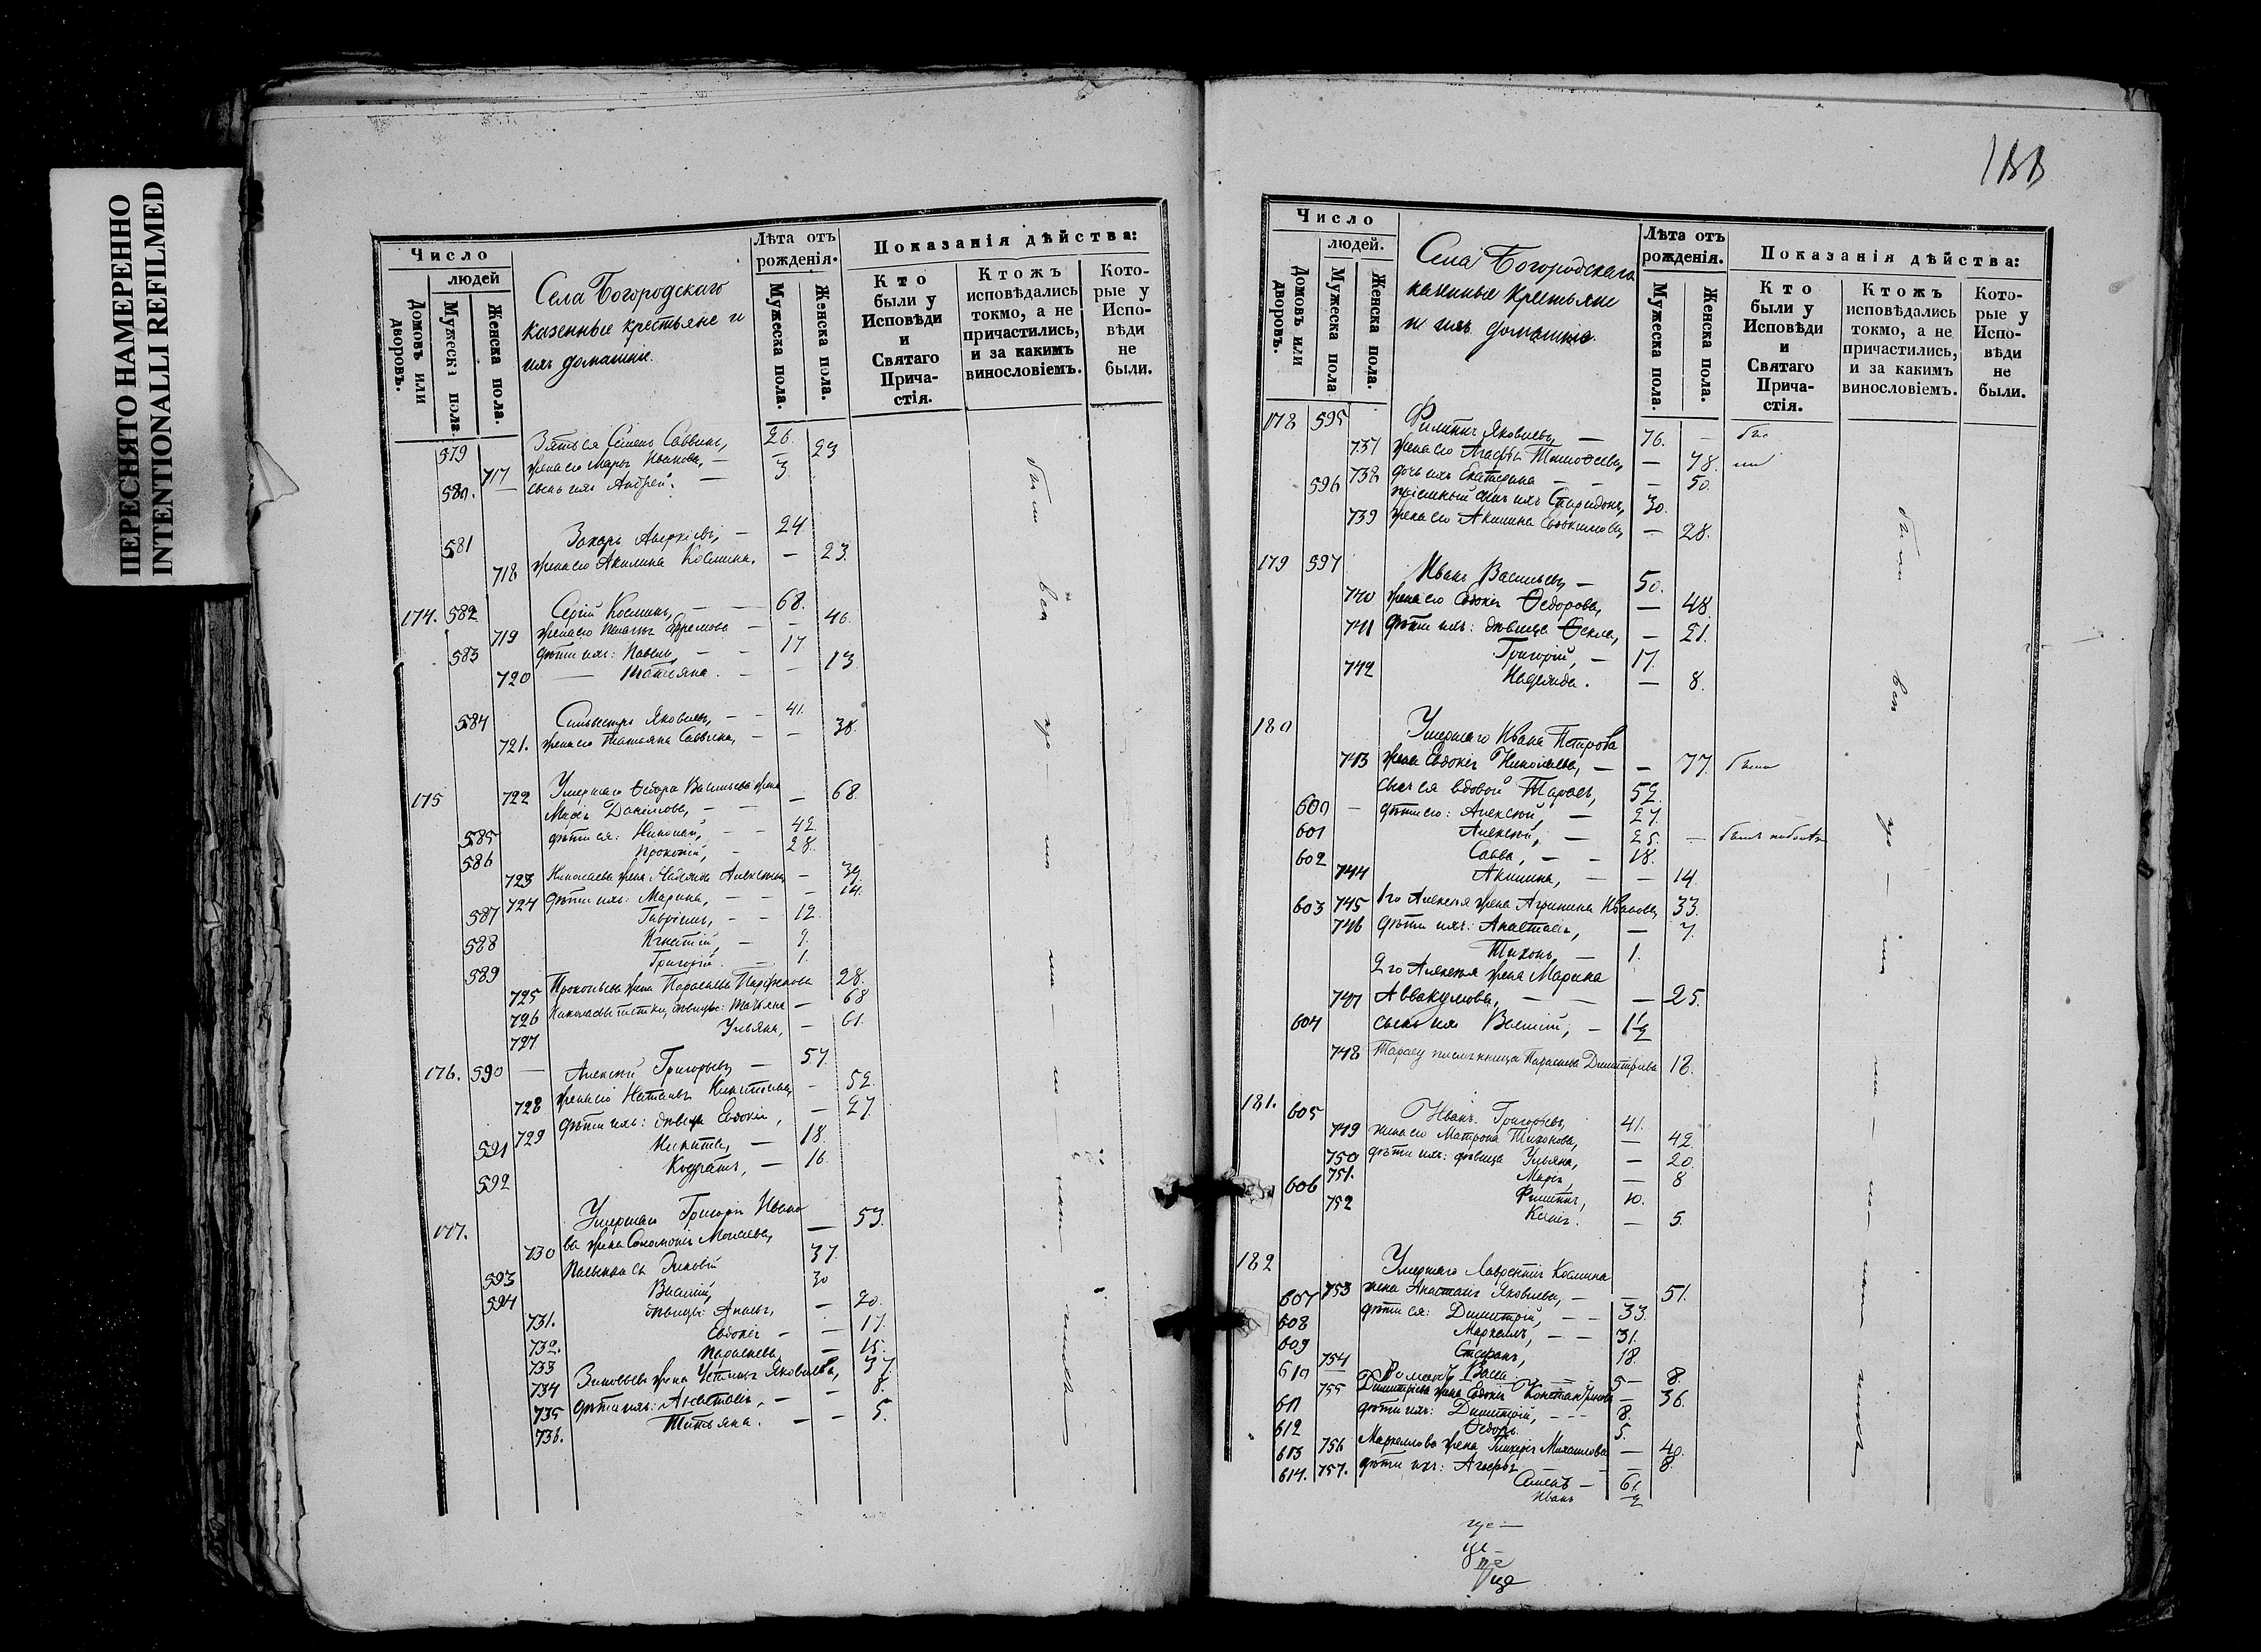 ПЕРЕСНЯТО НАМЕРЕННО
INTENTIONALLI REFILMED
Число
людей
Домовъ или дворовъ.
Мужеска пола.
Женска пола.
Села Богородскаго
казенные крестьяне и
ихъ домашніе.
Лѣта отъ рожденія.
Мужеска пола.
Женска пола.
Показанія дѣйства:
Кто были у Исповѣди и Святаго Прича- стія.
Ктожъ исповѣдались токмо, а не причастились, и за какимъ винословіемъ.
Кото- рые у Испо- вѣди не были.
579 Зять ея Саввинъ, 26.
717 жена его Иванова, — 23
580. сынъ ихъ Андрей. — 3.
581 Захаръ — 24
718 жена его Акилина Космина. — 23.
174. 582 Сергій Косминъ, — 68.
719 жена его Ефремова — 46.
583 дѣти ихъ: Павелъ, — 17
720 — Татьяна. — 13
584 Сильвестръ Яковлевъ, — 41.
721. жена его Татьяна Саввина, — 38.
175 722 Умершаго Ѳедора Васильева жена
Марія Данілова, — 68.
585 дѣти ея: Николай, — 42.
586 Прокопій, — 28.
723 Николаева жена Алексѣева — 39.
724 дѣти ихъ: Марина, — 14.
587 Гавріилъ, — 12.
588 Игнатій, —
589 Григорій. — 1.
725 Прокопьева жена Параскева Парфенова 28.
726 Николаевы тетки, дѣвицы: Татьяна — 68
727 Ульяна, — 61.
176. 590 — Алексѣй Григорьевъ — 57.
728 жена его — 52.
729 дѣти ихъ: дѣвица Евдокія, — 27.
591 Никита, — 18.
592 Кодратъ, — 16.
177. Умершаго Григорія Ивано
730 ва жена Соломонія Моисеева, — 53.
593 Зиновій 37.
594 Василій, 30
731. дѣвицы: — 20.
732. Евдокія — 17.
733 Параскева — 15.
734 Зиновьева жена Устинья Яковлева, 37
735 дѣти ихъ: Анастасія, — 8.
736. Татьяна. — 5.
188
Число
людей.
Домовъ или дворовъ.
Мужеска пола
Женска пола.
Села Богородскаго
казенные крестьяне
и ихъ домашніе.
Лѣта отъ рожденія.
Мужеска пола.
Женска пола.
Показанія дѣйства:
Кто были у Исповѣди и Святаго Прича- стія.
Ктожъ исповѣдались токмо, а не причастились, и за какимъ винословіемъ.
Кото- рые у Испо- вѣди не были.
178 595 Филиппъ Яковлевъ — 76. —
737 жена его Агафья Тимоѳеева, — 78.
738 дочь ихъ Екатерина — 50.
596 пріемный сынъ ихъ Спиридонъ, 30.
739 жена его Акилина — 28.
179 597 Иванъ Васильевъ — 50.
740 жена его Евдокія Ѳедорова, — 48.
741 дѣти ихъ: дѣвица Ѳекла, — 21.
Григорій, — 17.
742 Надежда. — 8.
180 Умершаго Ивана Петрова
743 жена Евдокія Николаева, — 77. была
сынъ ея вдовой Тарасъ, 52.
600 — дѣти его: Алексѣй, — 27.
601 Алексѣй, — 25. —
602 Савва, — 18.
744 Акилина, — 14.
745 1го Алексѣя жена Агрипина Иванова, 33.
603 746 дѣти ихъ: Анастасія, — 7.
Тихонъ, — 1.
2го Алексѣя жена Марина
747 Аввакумова, — 25.
604 сынъ ихъ Василій, — 1½
748 Тарасу Параскева Димитріева 18.
181. 605 Иванъ Григорьевъ, 41.
749 жена его Матрона Тихонова, — 42.
750 дѣти ихъ: дѣвица Ульяна, — 20.
751. Марія, — 8
606 Филиппъ, 10.
752 Ксенія. — 5.
182 Умершаго Лаврентія Космина
753 жена Анастасія Яковлева, — 51.
607 дѣти ея: Димитрій, — 33.
608 Маркеллъ, — 31.
609 Стефанъ, 18.
610 754
755 Димитріева жена Евдокія Константинова — 36.
611 дѣти ихъ: Димитрій, — 8.
612 Ѳедоръ 5.
613 756 Маркеллова жена Михаилова — 40.
614. 757. дѣти ихъ: Агафья — 8.
Симеонъ — 6.
Иванъ